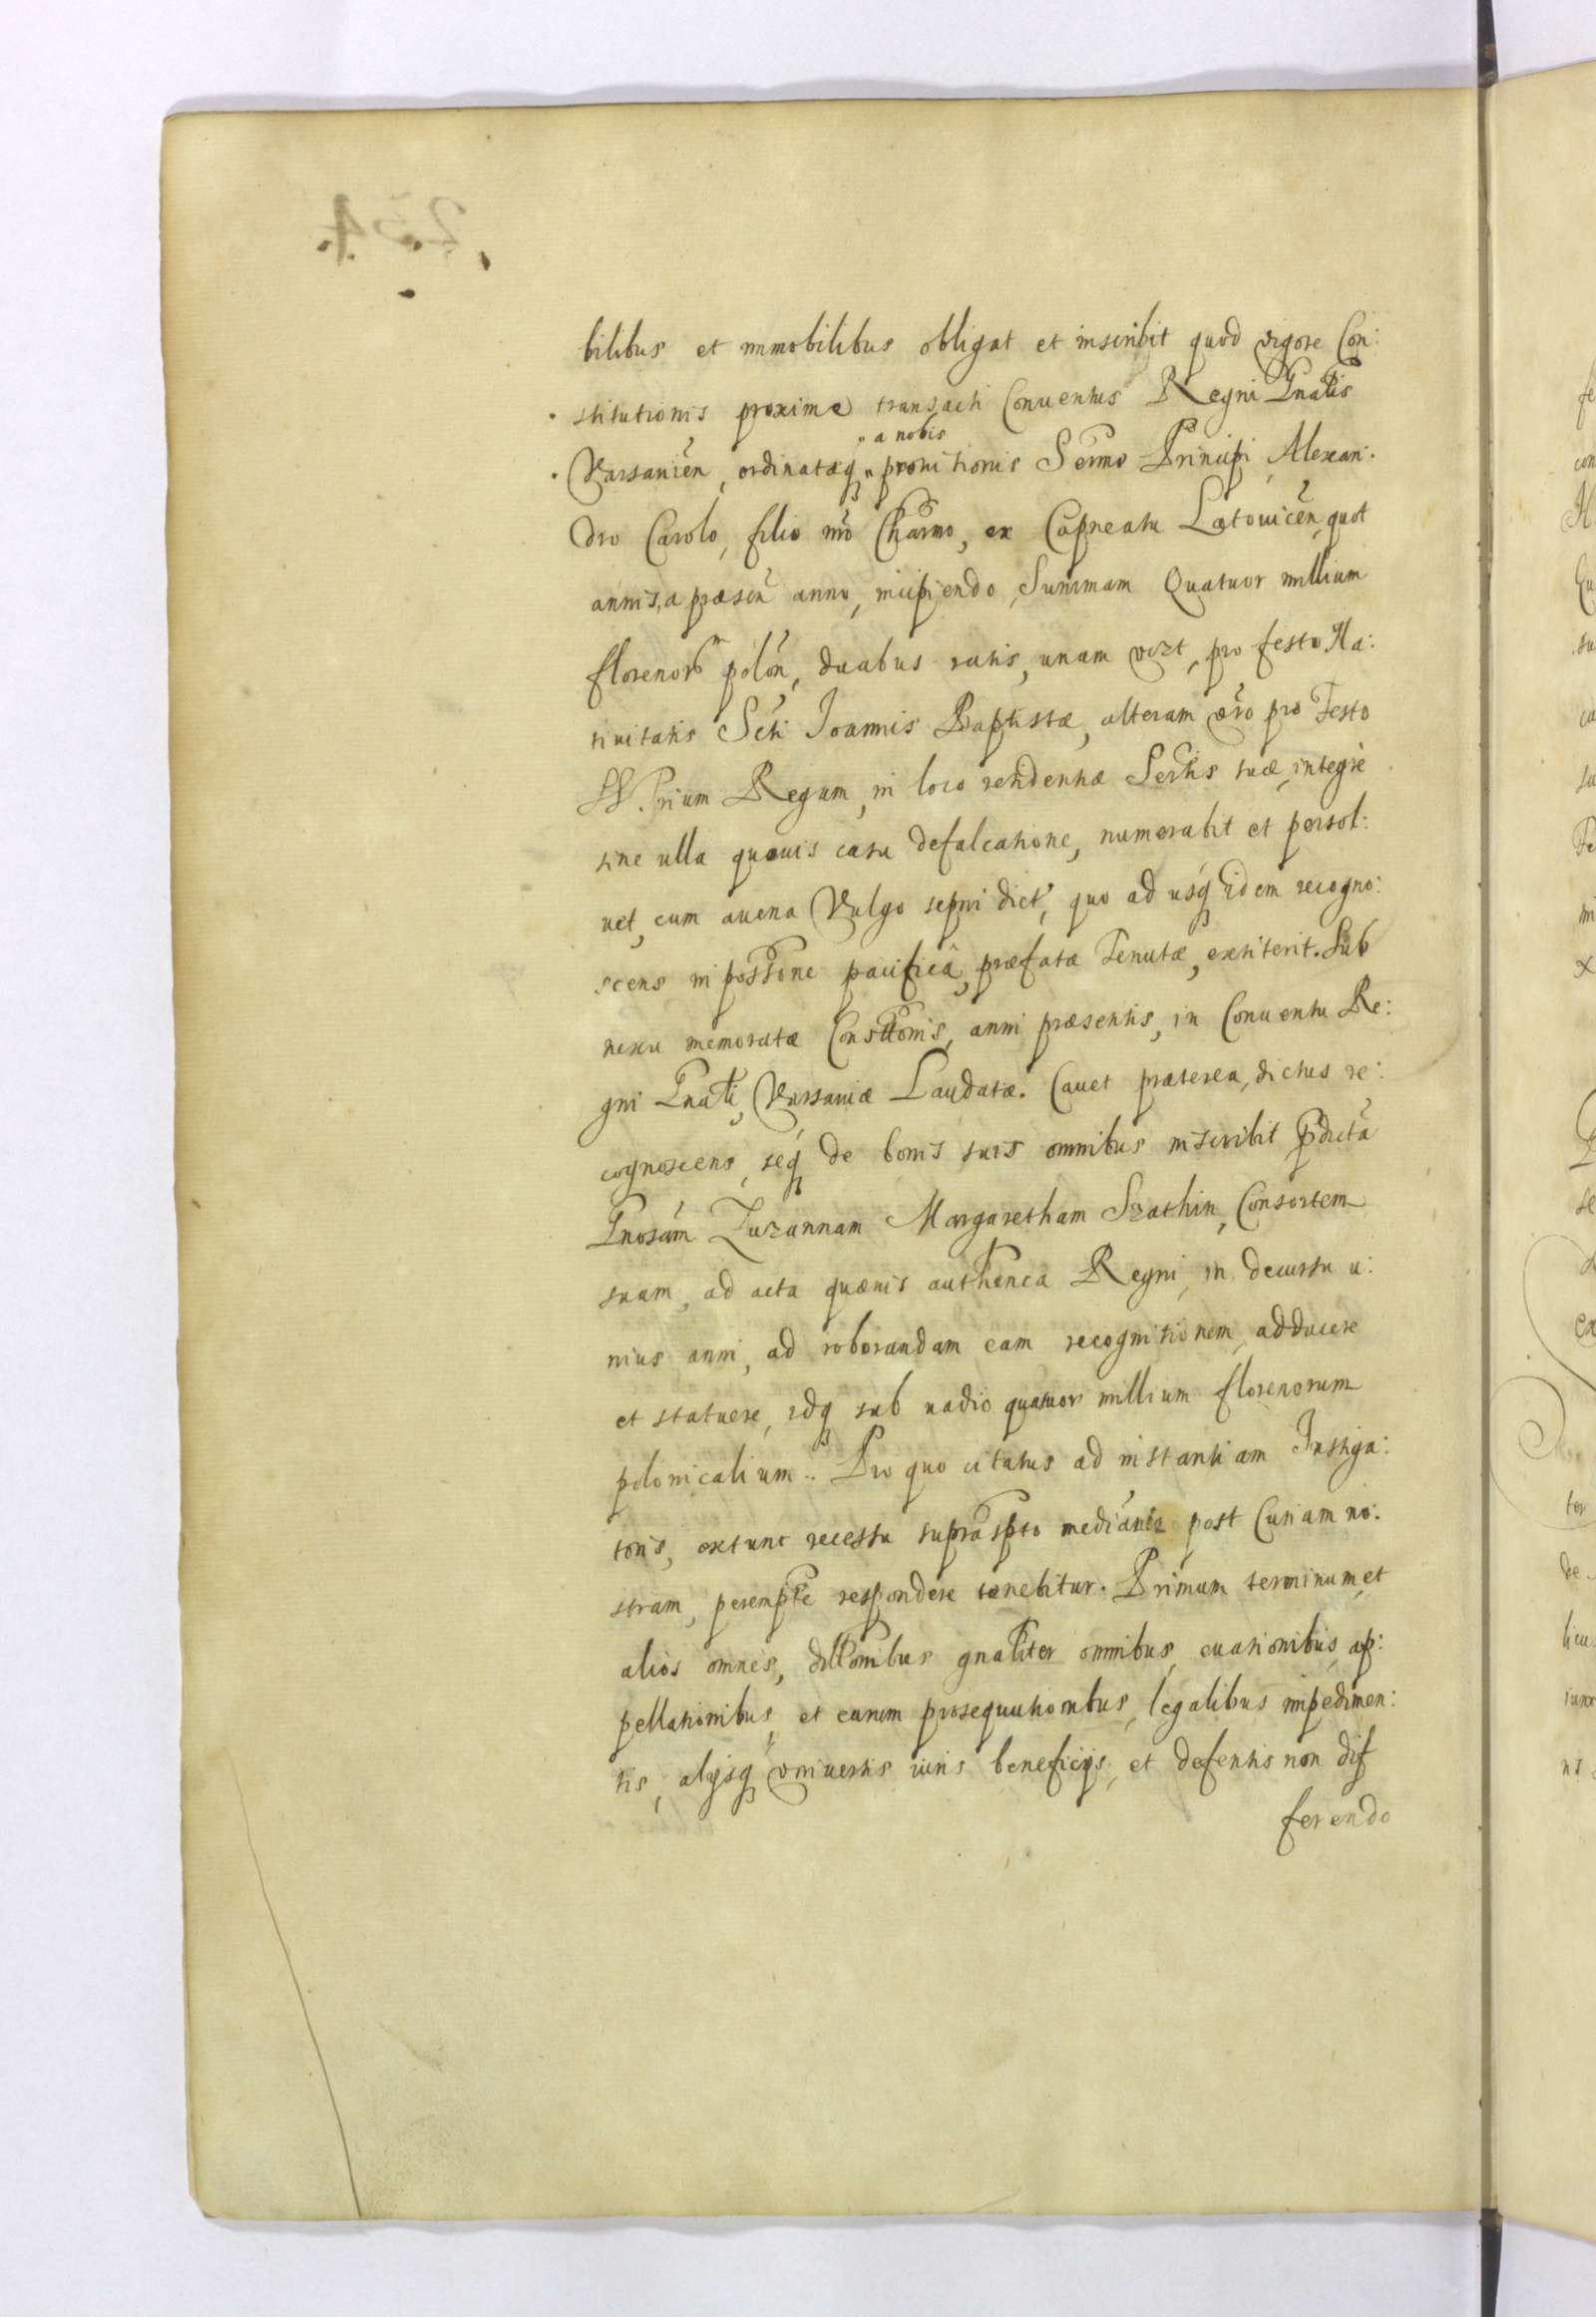 bilibus et immobilibus obligat et inscribit quod vigore Con:
stitutionis proxime transacti Conuentus Regni Gnalis
a nobis
Varsauien, ordinatæq prouisionis Sermo Principi Alexan:
dro Carolo, filio nro Charmo, ex Capneatu Latouicen, quot
annis, a præsen anno, incipiendo, Summam Quatuor millium
florenorum polon, duabus ratis, unam vizt, pro festo Na:
tiuitatis Scti Joannis Baptistæ, alteram vero pro Festo
SS. Trium Regum, in loco residentiæ Sertis suæ, integrè
sine ulla quouis casu defalcatione, numerabit et persol:
uet, cum auena Vulgo sepni dict, quo ad usq idem recogno:
scens in possione pacificâ, præfatæ Tenutæ, extiterit. Sub
nexu memoratæ Consttionis, anni præsentis, in Conuentu Re:
gni Gnali, Varsauiæ Laudatæ. Cauet præterea, dictus re:
cognoscens, seq de bonis suis omnibus inscribit pdicta
Gnosam Zuzannam Margaretham Szathin, Consortem
suam, ad acta quæuis authenca Regni, in decursu u:
nius anni, ad roborandam eam recognitionem, adducere
et statuere, idq sub uadio quatuor millium florenorum
polonicalium. Pro quo citatus ad instantiam Instiga:
toris, extunc recessu suprascpto mediante post Curiam no:
stram, perempte respondere tenebitur. Primum terminum, et
alios omnes, dillonibus gnaliter omnibus, euasionibus, ap:
pellationibus, et earum prosequutionibus, legalibus impedimen:
tis, alijsq vniuersis iuris beneficijs, et defensis non dif
ferendo